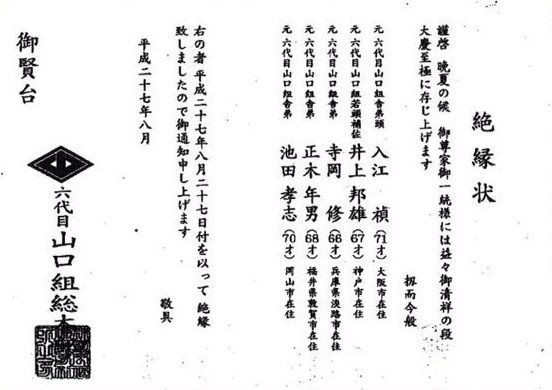 絶縁状
謹啓 晩夏の候 御尊家御一統様には益々御清祥の段
大慶至極に存じ上げます
扨而今般
元 六代目山口組舎弟頭 入江 禎(71才) 大阪市在住
元 六代目山口組若頭補佐 井上 邦雄(67才) 神戸市在住
元 六代目山口組舎弟 寺岡 修(66才) 兵庫県淡路市在住
元 六代目山口組舎弟 正木 年男(68才) 福井県敦賀市在住
元 六代目山口組舎弟 池田 孝志(70才) 岡山市在住
右の者 平成二十七年八月二十七日付を以って 絶縁
致しましたので御通知申し上げます
敬具
平成二十七年八月
六代目 山口組総本
御賢台